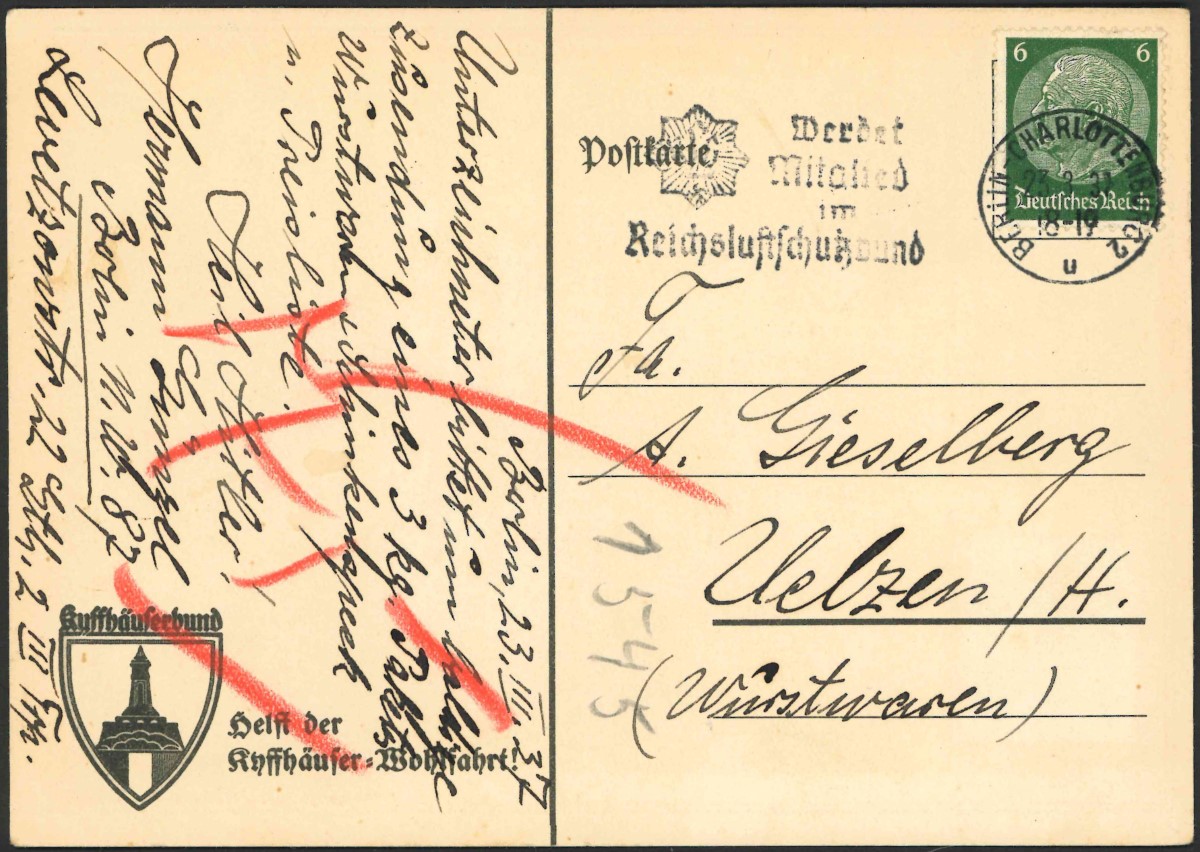 Berlin, 23. III. 37
Unterzeichneter bittet um baldige
Zusendung eines 3 kg Pakets
Wurstwaren u. Schinkenspeck
u. Preisliste.
Heil Hitler!
Hermann
Berlin N.W. 87
Levetzowstr. 22
Kyffhäuserbund
Helft der
Kyffhäuser-Wohlfahrt!
Postkarte
Werdet
Mitglied
im
Reichsluftschutzbund
6 6
Deutsches Reich
BERLIN-CHARLOTTENBURG 2
23.3.37
18-19
u
Fa.
A. Gieselberg
Uelzen/H.
(Wurstwaren)
1545